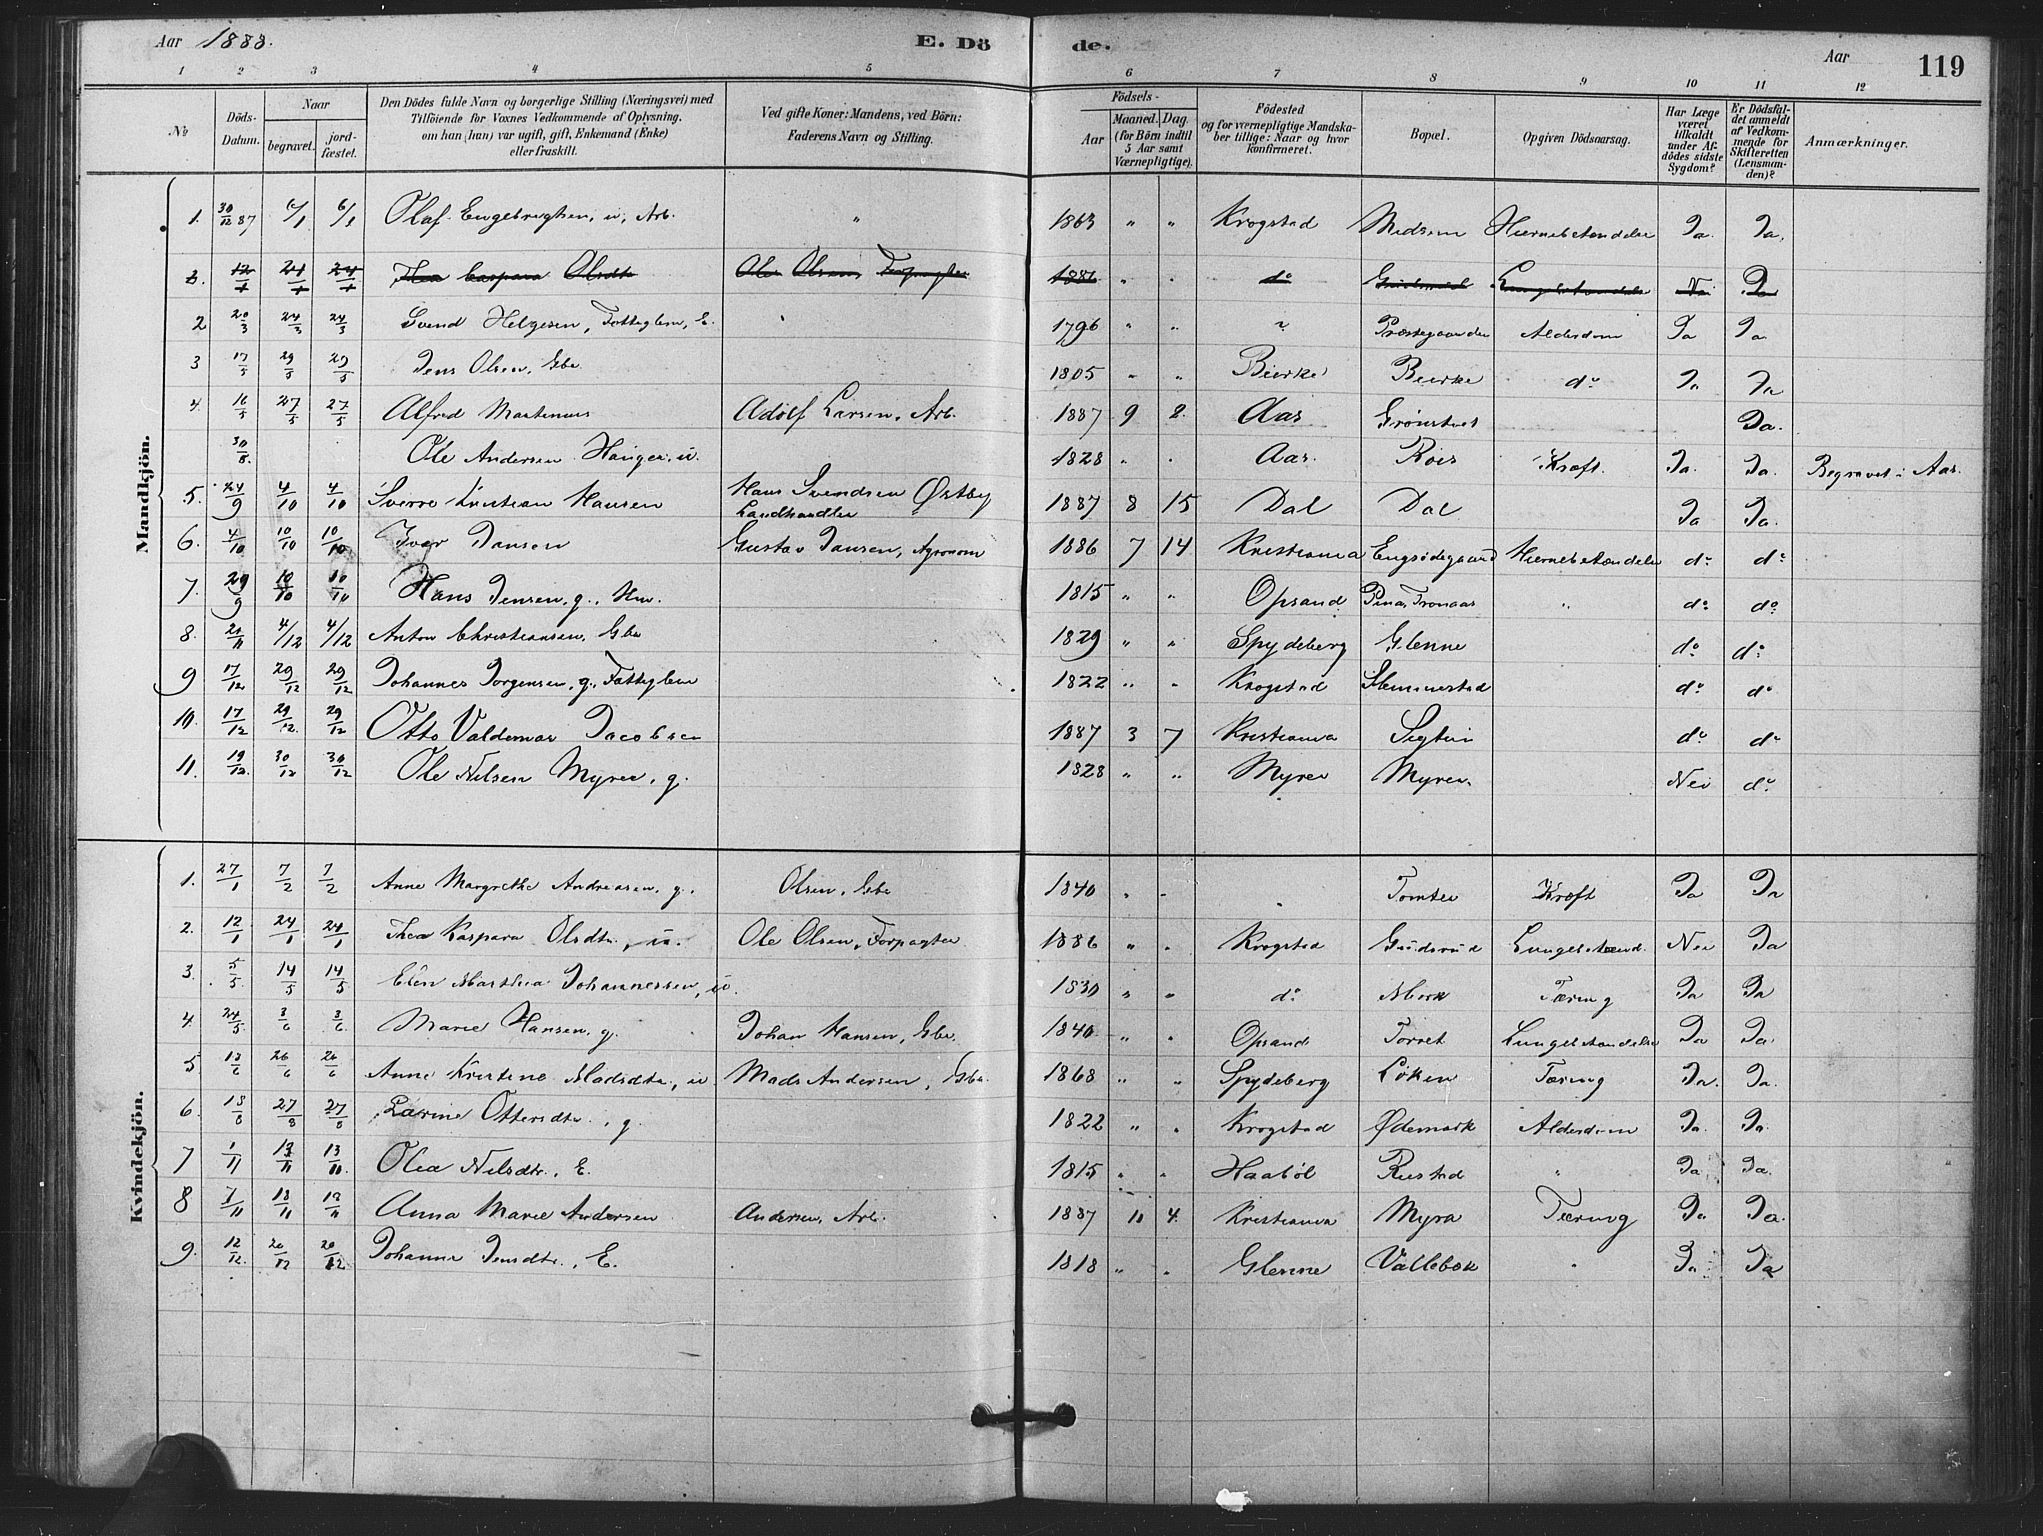 Aar 1888. E. Dö de. Aar 119
1 2 3 4 5 6 7 8 9 10 11 12
№ Döds-Datum. Naar begravet. jordfæstet. Den Dödes fulde Navn og borgerlige Stilling (Næringsvei) med Tilföiende for Voxnes Vedkommende af Oplysning, om han (hun) var ugift, gift, Enkemand (Enke) eller fraskilt. Ved gifte Koner: Mandens, ved Börn: Faderens Navn og Stilling. Födsels- Aar Maaned. Dag. (for Börn indtil 5 Aar samt Værnepligtige). Födested og for værnepligtige Mandskaber tillige: Naar og hvor konfirmeret. Bopæl. Opgiven Dödsaarsag. Har Læge været tilkaldt under Afdödes sidste Sygdom? Er Dödsfaldet anmeldt af Vedkommende for Skifteretten (Lensmanden)? Anmærkninger.
Mandkjön.
1. 30/12 87 6/1 6/1 Olaf Engebregtsen, u, Arb. " 1863 " " Krogstad Hiernebetændelse Ja. Ja.
2. 12/1 24/1 24/1 Thea Caspara Olsdtr Ole Olsen Forpagter 1886 " " do Gudsrud Lungebetændelse Nei Ja
2 20/3 24/3 24/3 Svend Helgesen, Fattiglem, E. 1796 " " " Præstegaarden Alderdom Ja Ja
3 17/5 29/5 29/5 Jens Olsen, Gbr 1805 " " Bierke Bierke do Ja Ja
4. 16/5 27/5 27/5 Alfred Martenius Adolf Larsen, Arb. 1887 9 2. Aas Grønstvet Ja.
30/8. Ole Andersen Hauger, u. 1828 " " Aas. Kræft. Ja. Ja. Begravet i Aas.
5. 24/9 4/10 4/10 Sverre Kristian Hansen Hans Svendsen Østby Landhandler 1887 8 15 Dal Dal Ja Ja.
6. 4/10 10/10 10/10 Ivar Jansen Gustav Jansen, Agronom 1886 7 14 Kristiania Engsidegaard Hiernebetændelse do do
7. 29/9 10/10 10/10 Hans Jensen, g., Hm. 1815 " " Opsand Tronaas " do do
8. 20/11 4/12 4/12 Anton Christiansen, Gbr 1829 " " Spydeberg Glenne do do
9 17/12 29/12 29/12 Johannes Jorgensen, g., Fattiglem 1822 " " Krogstad Slemmestad do do
10. 17/12 29/12. 29/12 Otto Valdemar Jacobsen 1887 3 7 Kristiania do do
11. 19/12. 30/12 30/12 Ole Nilsen Myren, g. 1828 " " Myren Myren. Nei do.
Kvindekjön.
1. 27/1 7/2 7/2 Anne Margrethe Andreasen, g. Olsen, Gbr 1840 " " " Tomter Kræft Ja Ja
2. 12/1 24/1 24/1 Thea Kaspara Olsdtr., u. Ole Olsen, Forpagter 1886 " " Krogstad Gudsrud Lungebetænd. Nei Ja
3. 5/5. 14/5 14/5 Elen Marthea Johannessen, u. 1830 " " do. Mork Tæring Ja Ja
4. 24/5. 3/6 3/6 Marie Hansen, g. Johan Hansen, Gbr. 1840 " " Opsand Torvet Lungebetændelse Ja Ja.
5 13/6 26/6 26/6 Anne Kristine Madsdtr., u Mads Andersen, Gbr. 1868 " " Spydeberg Løken Tæring Ja. Ja.
6. 18/8 27/8 27/8 Larine Ottersdtr., g 1822 " " Krogstad Ødemark Alderdom Ja. Ja.
7 1/11 13/11 13/11. Olea Nilsdtr., E. 1815 " " Haabøl Rustad " Ja. Ja.
8 7/11 18/11 18/11 Anna Marie Andersen Andersen, Arb. 1887 11 4. Kristiania Myra Tæring Ja Ja.
9. 12/12. 20/12 20/12 Johanne Jensdtr., E. 1818 " " Glenne Vallebæk " Ja Ja